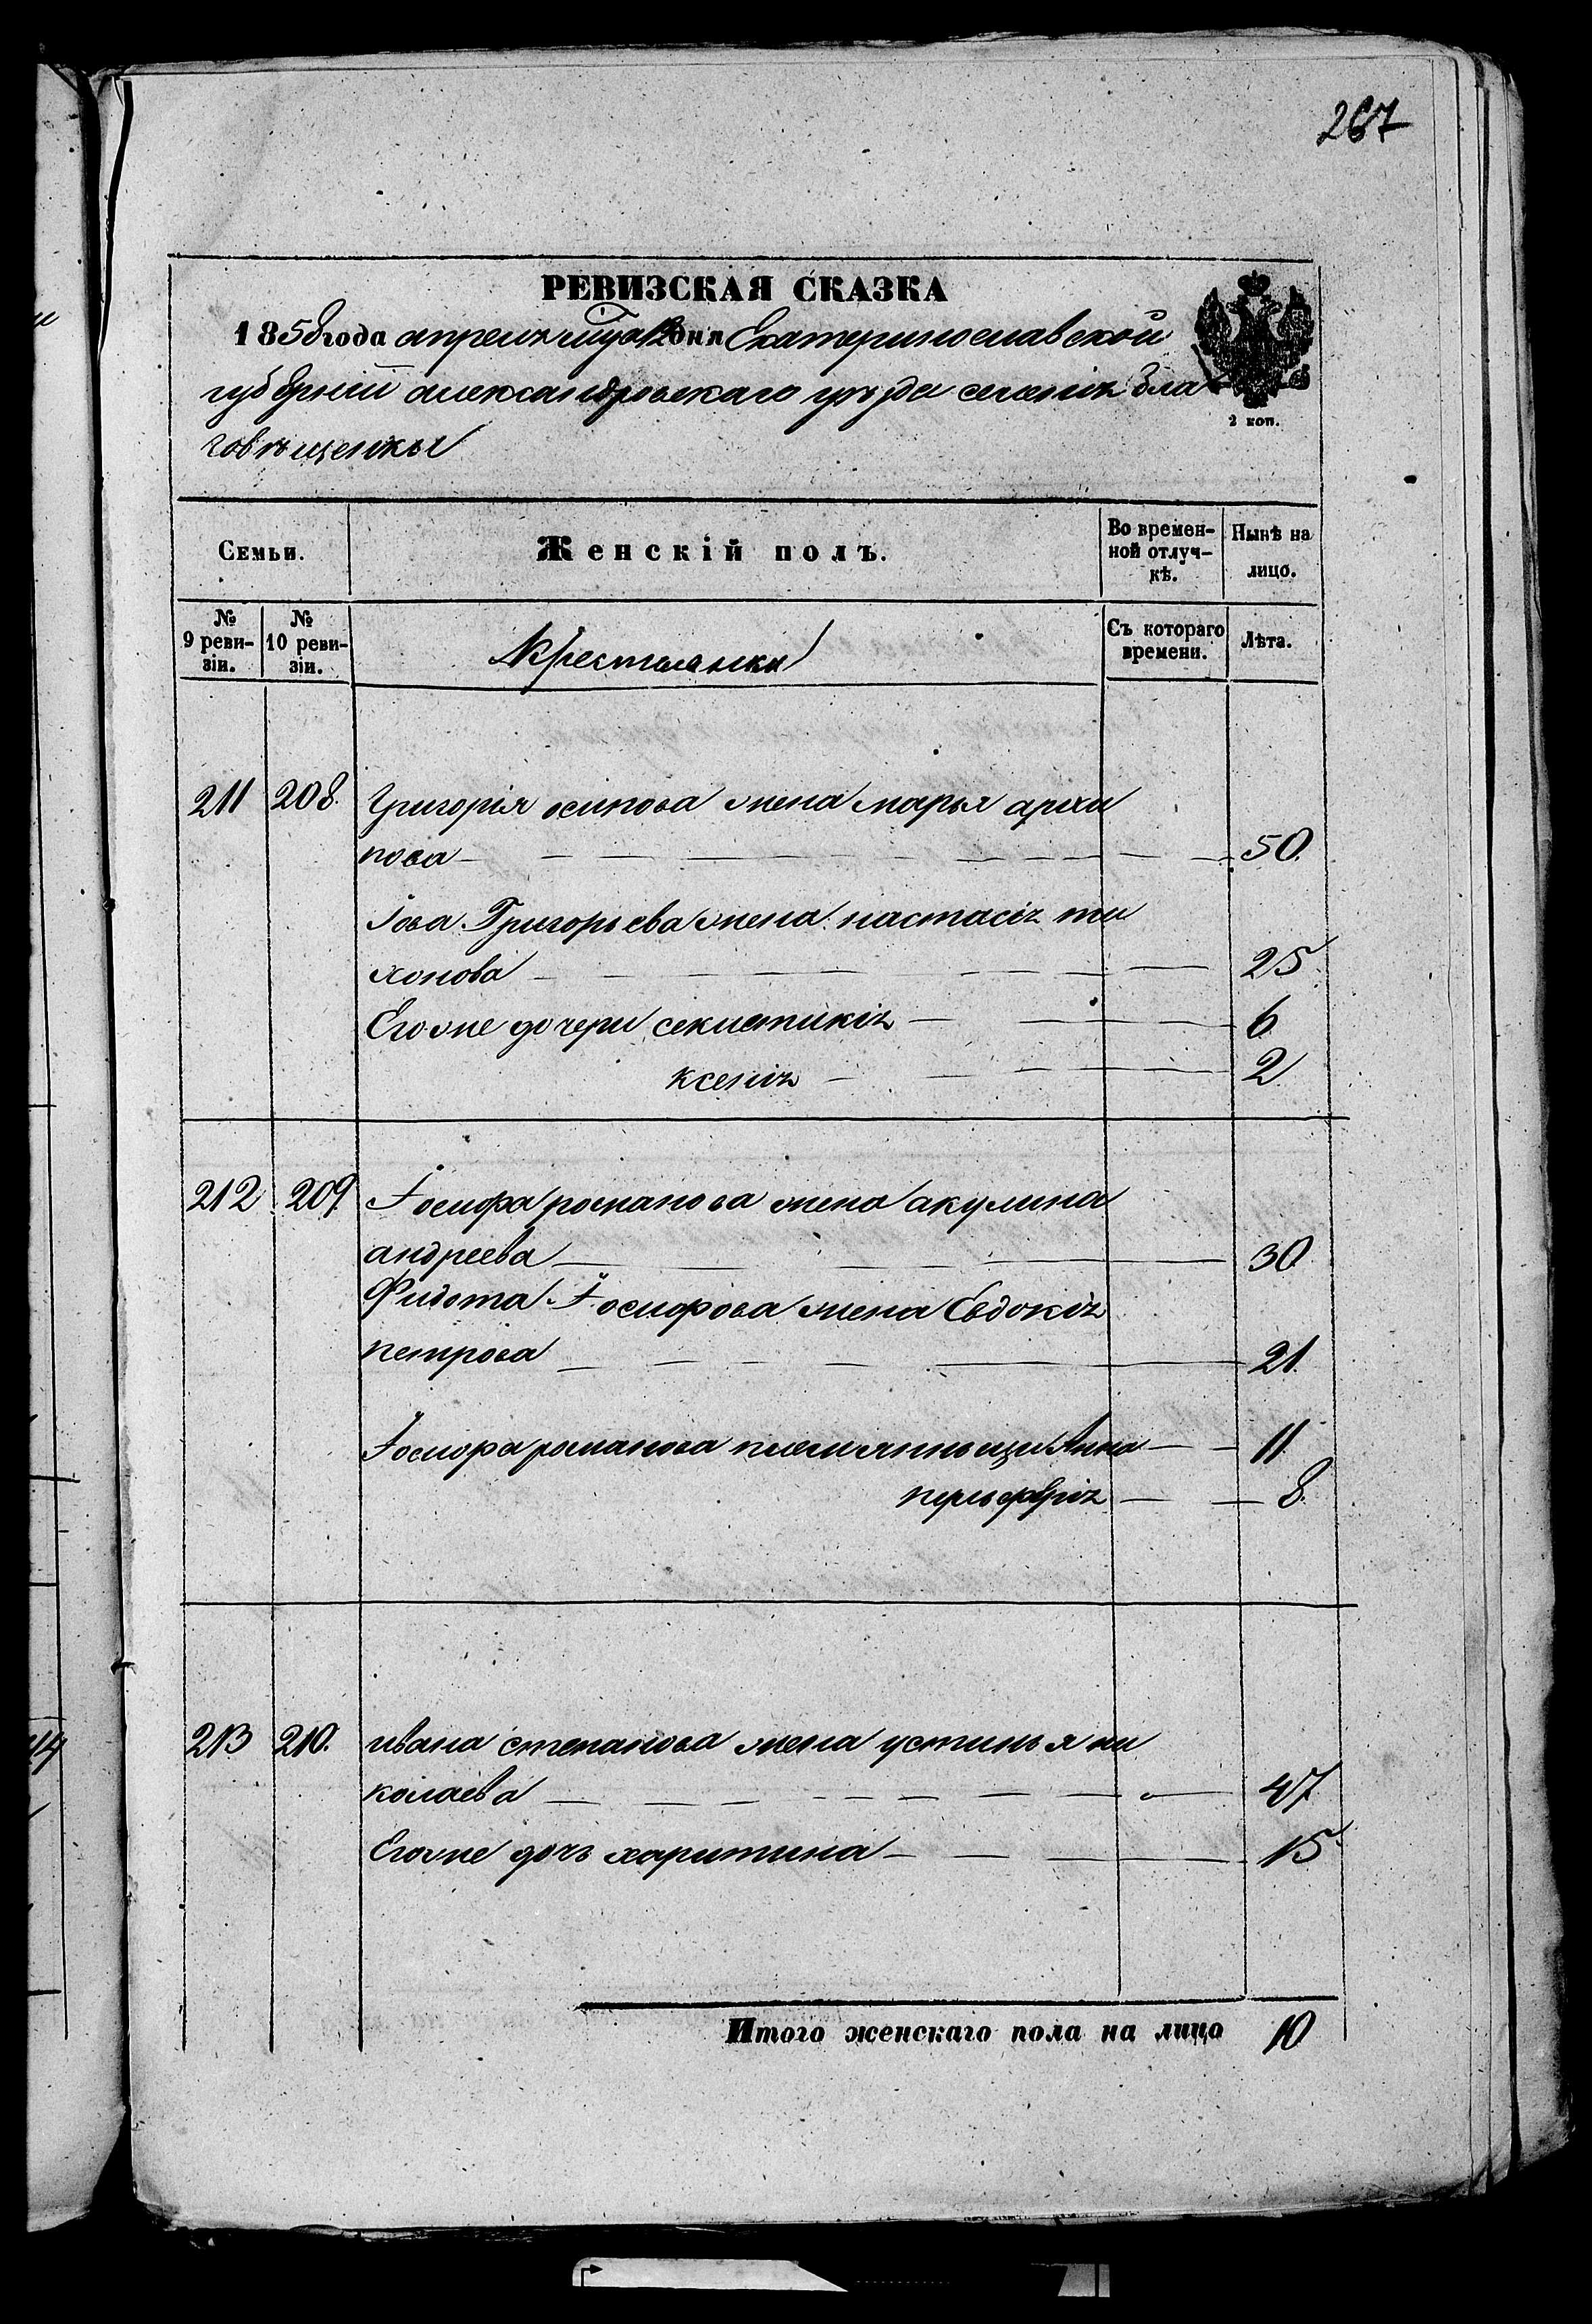 267
РЕВИЗСКАЯ СКАЗКА
1858 года апреля дня Екатеринославской
губерніи александровскаго уѣзда селенія бла
2 коп.
говѣщенкы
Семьи.
Женскій полъ.
Во времен-
ной отлуч-
кѣ.
Нынѣ на
лицо.
№
9 реви-
зіи.
№
10 реви-
зіи.
Крестьянки
Съ котораго
времени.
Лѣта.
211 208. Григорія осипова жена марья архи
пова 50.
Іова Григорьева жена настасія ти
хонова 25.
Его же дочери 6
ксенія 2
212 209 Іосифа романова жена акулина
андреева 30
Фидота Іосифова жена Евдокія
петрова 21.
Іосифа романова Анна 11.
8.
213 210. ивана степанова жена устинья ни
колаева 47
Его же дочь харитина 15.
Итого женскаго пола на лицо 10